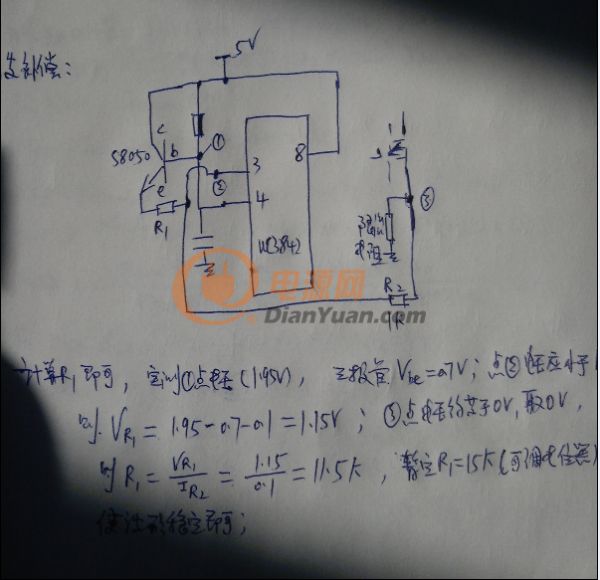 补偿：
5V
c
b
S8050
e
R1
①
②
3
8
4
UC3842
③
电阻
R2
1K
电源网
DianYuan.com
计算R1即可，实测①点电压(1.95V)，三极管Vbe=0.7V；点②电压应小于1
则 VR1=1.95-0.7-0.1=1.15V；③点电压约等于0V,取0V，
则 R1=VR1/IR2=1.15/0.1=11.5K，暂定R1=15K(可调电位器)
使波形稳定即可；